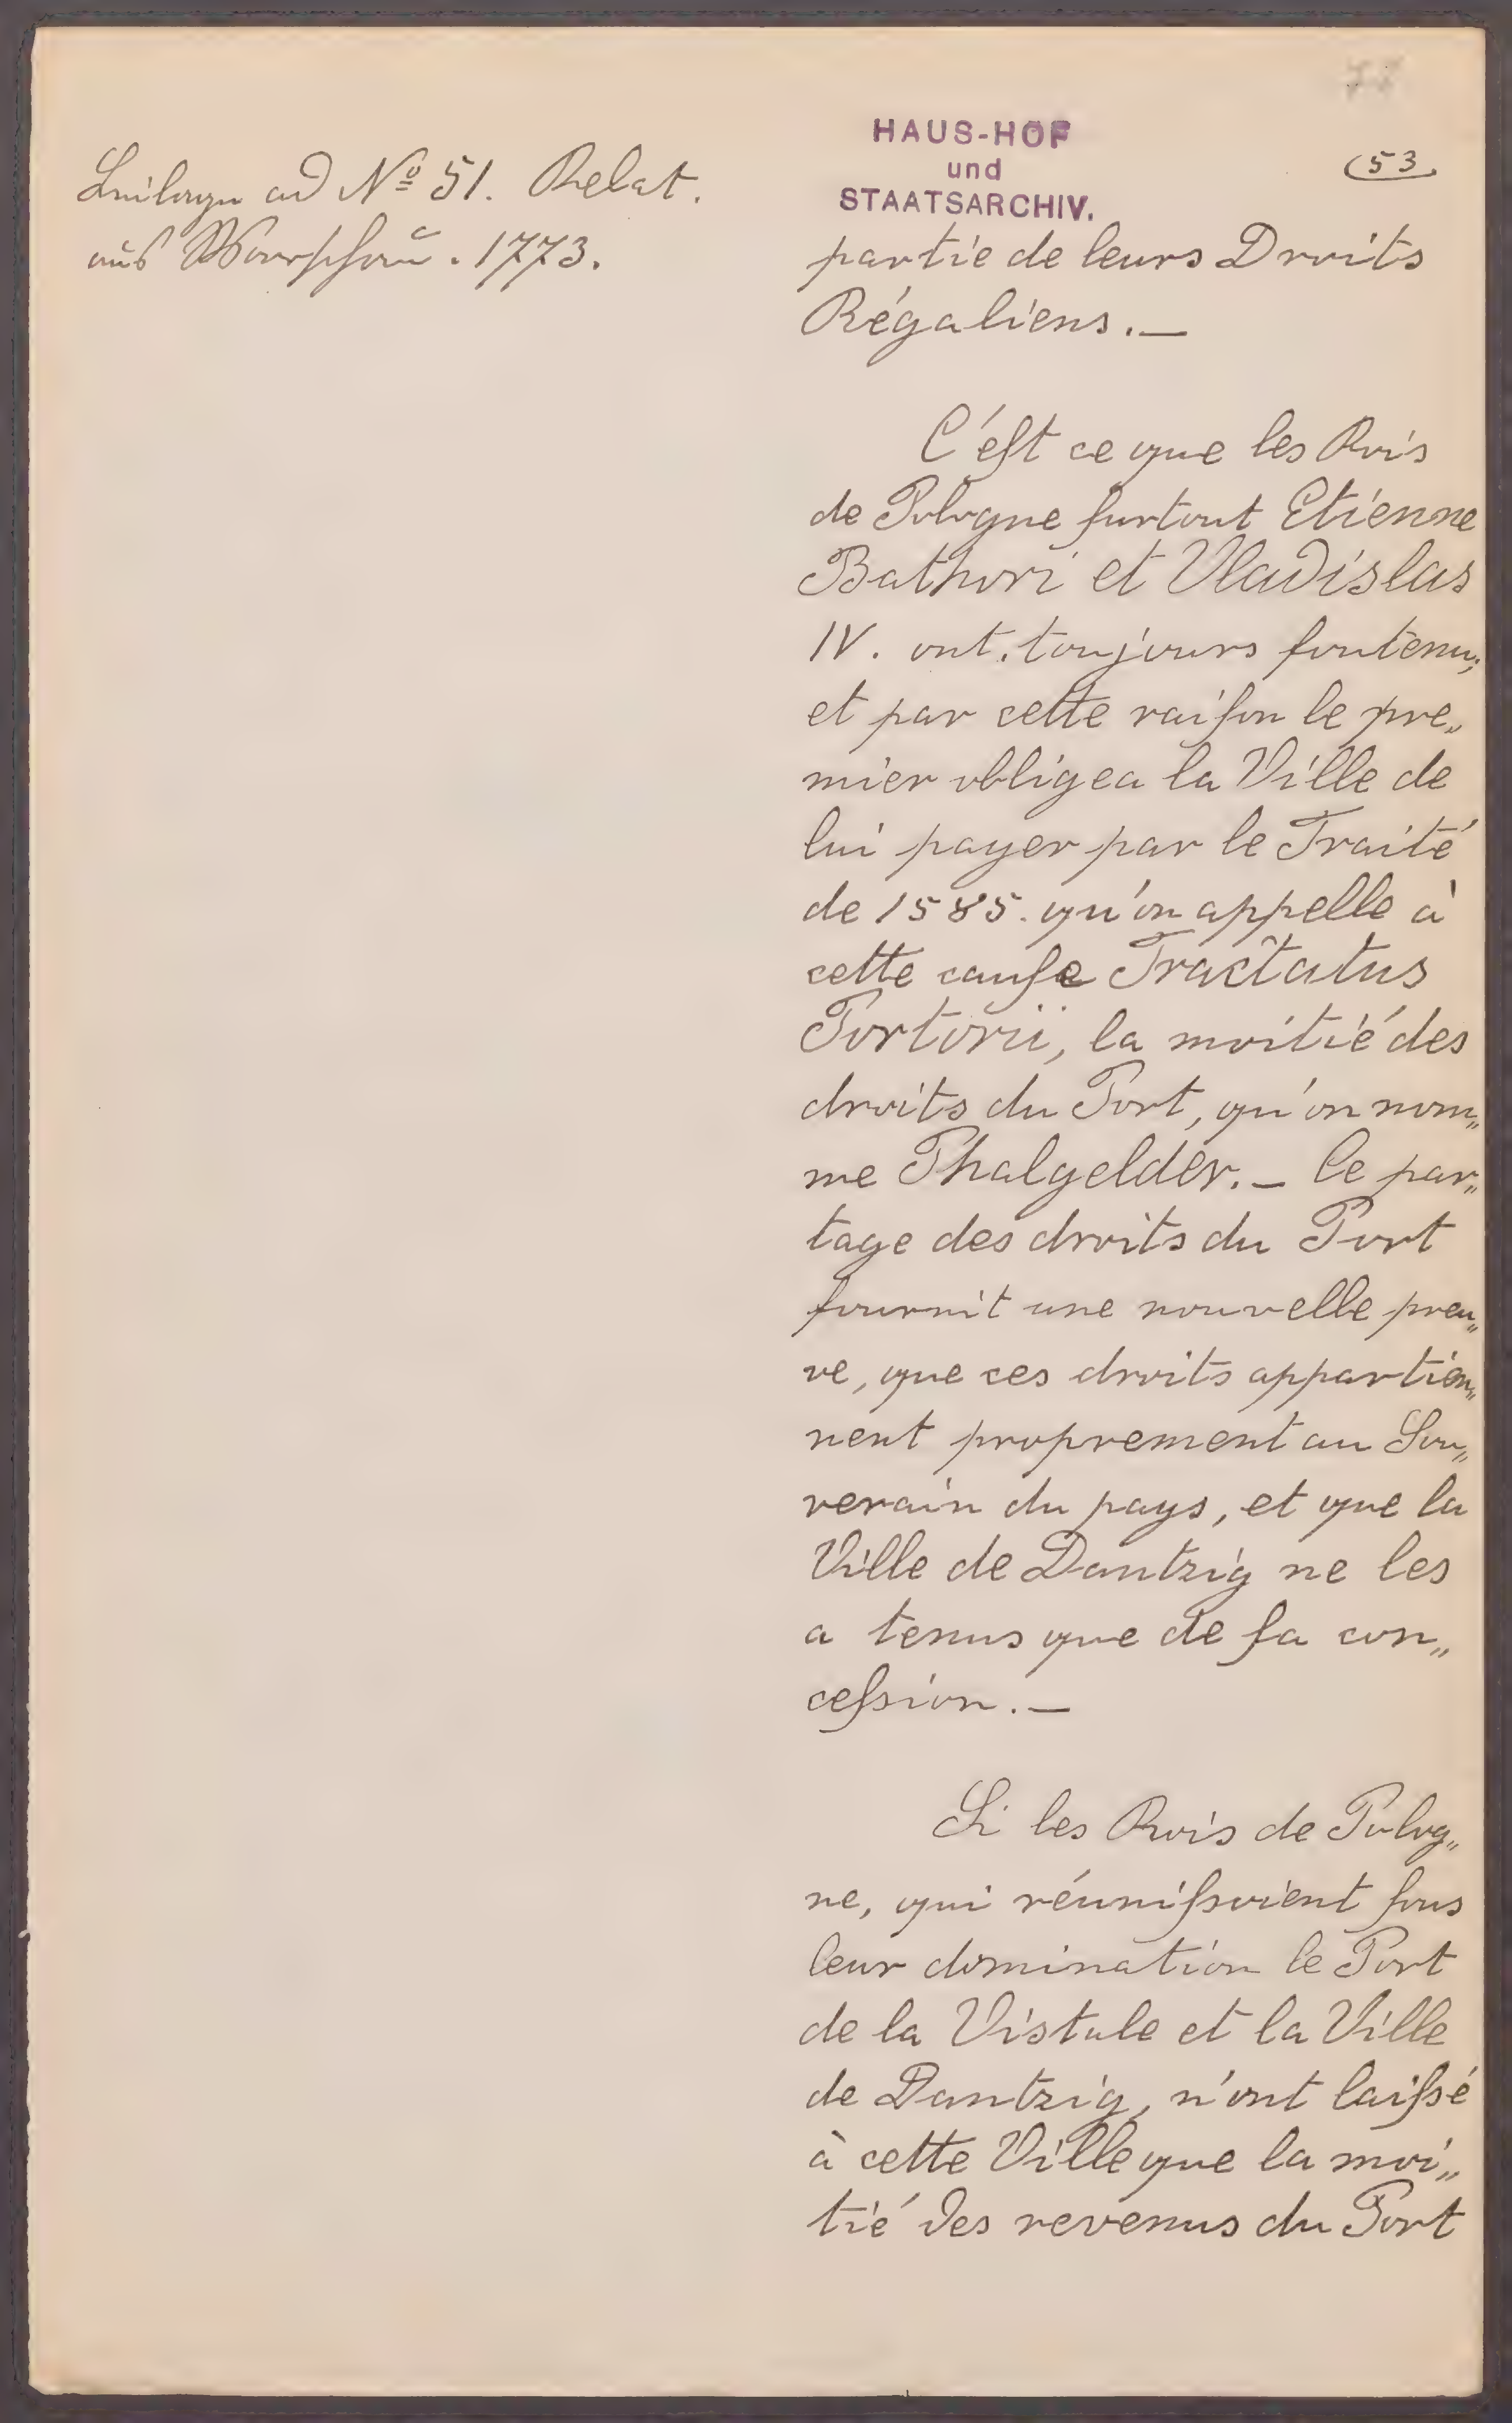 Beilagen ad Nº 51. Relat.
aus Warschau. 1773.
HAUS-HOF
und
STAATSARCHIV.
(53.
partie de leurs Droits
Régaliens.—
C'eſt ce que les Rois
de Pologne ſurtout Etienne
Bathori et Vladislas
IV. ont toujours ſoutenu;
et par cette raiſon le pre„
mier obligea la Ville de
lui payer par le Traité
de 1585. qu'on appelle à
cette cauſe Tractatus
Portorii, la moitié des
droits du Port, qu'on nom„
me Phalgelder.— Ce par„
tage des droits du Port
fournit une nouvelle preu„
ve, que ces droits appartien„
nent proprement au Sou„
verain du pays, et que la
Ville de Dantzig ne les
a tenus que de ſa con„
ceſsion.—
Si les Rois de Polog„
ne, qui réuniſsoient ſous
leur domination le Port
de la Vistule et la Ville
de Dantzig, n'ont laiſsé
à cette Ville que la moi„
tié des revenus du Port